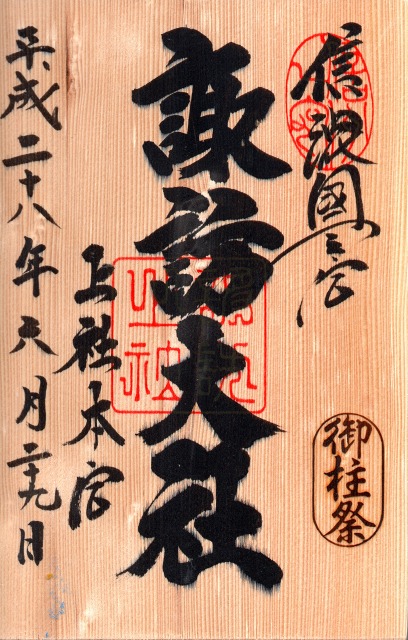 信濃國一之宮
御柱祭
諏訪大社
上社本宮
平成二十八年六月二十九日